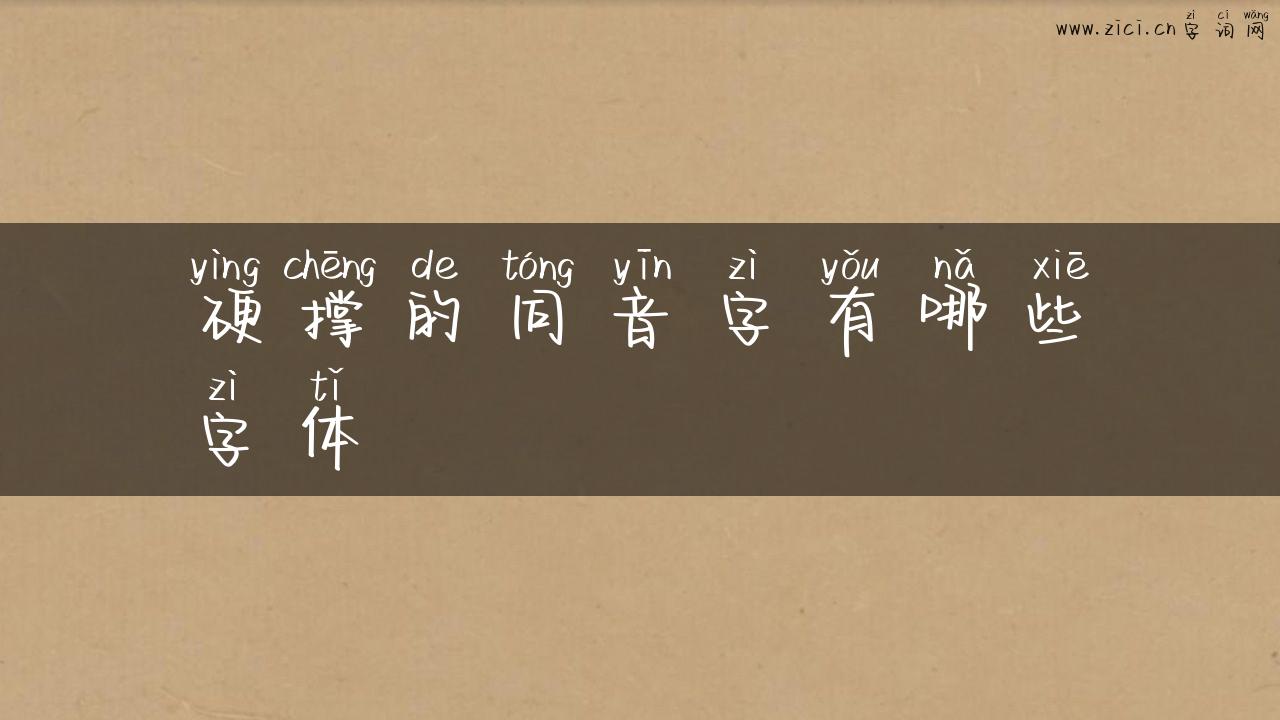 zì cí wǎng
www.zici.cn 字词网
yìng chēng de tóng yīn zì yǒu nǎ xiē
硬撑的同音字有哪些
zì tǐ
字体